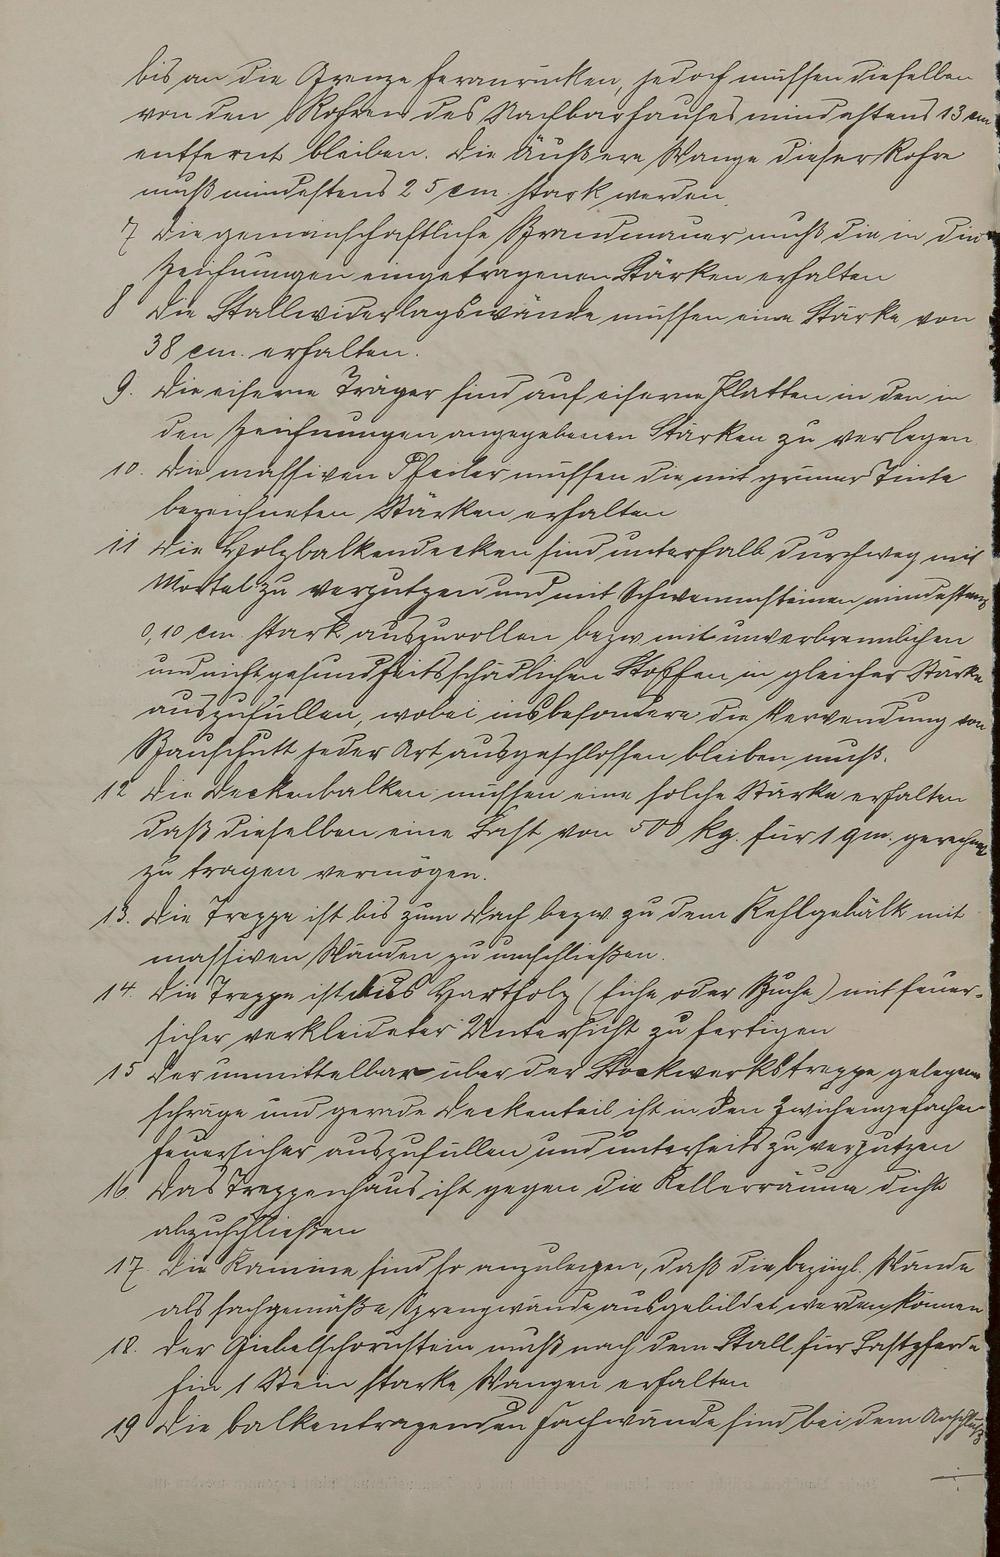 bis an die Grenze heranrücken, jedoch müssen dieselben
von den Rohren des Nachbarhauses mindestens 13 cm
entfernt bleiben. Die äußere Wange dieser Rohre
muß mindestens 25 cm stark werden.
7 Die gemeinschaftliche Brandmauer muß die in die
Zeichnungen eingetragenen Stärken erhalten
8 Die Stallwiderlagswände müssen eine Stärke von
38 cm. erhalten.
9. Die eiserne Träger sind auf eiserne Platten in den in
den Zeichnungen angegebenen Stärken zu verlegen
10. Die massiven Pfeiler müssen die mit grüner Tinte
bezeichneten Stärken erhalten
11 Die Holzbalkendecken sind unterhalb durchweg mit
Mörtel zu verputzen und mit Schwemmsteinen mindestens
0,10 cm stark auszurollen bezw mit unverbrennlichen
und nicht gesundheitsschädlichen Stoffen in gleicher Stärke
auszufüllen, wobei insbesondere die Verwendung von
Bauschutt jeder Art ausgeschlossen bleiben muß.
12 Die Deckenbalken müssen eine solche Stärke erhalten
daß dieselben eine Last von 500 kg. für 1 qm. gerechnet
zu tragen vermögen.
13. Die Treppe ist bis zum Dach bezw. zu dem Kehlgebälk mit
massiven Wänden zu umschließen.
14. Die Treppe ist aus Hartholz (Eiche oder Buche) mit feuer-
sicher verkleideter Untersicht zu fertigen
15 Der unmittelbar über der Stockwerkstreppe gelegene
schräge und gerade Deckenteil ist in den Zwichengefachen
feuersicher auszufüllen und unterseits zu verputzen
16 Das Treppenhaus ist gegen die Kellerräume dicht
abzuschließen
17. Die Kamine sind so anzulegen, daß die bezügl. Wände
als sachgemäße Sprengwände ausgebildet werden können
18. Der Giebelschornstein muß nach dem Stall für Lastpferde
hin 1 Stein starke Wangen erhalten
19 Die balkentragenden Fachwände sind bei dem Anschluß